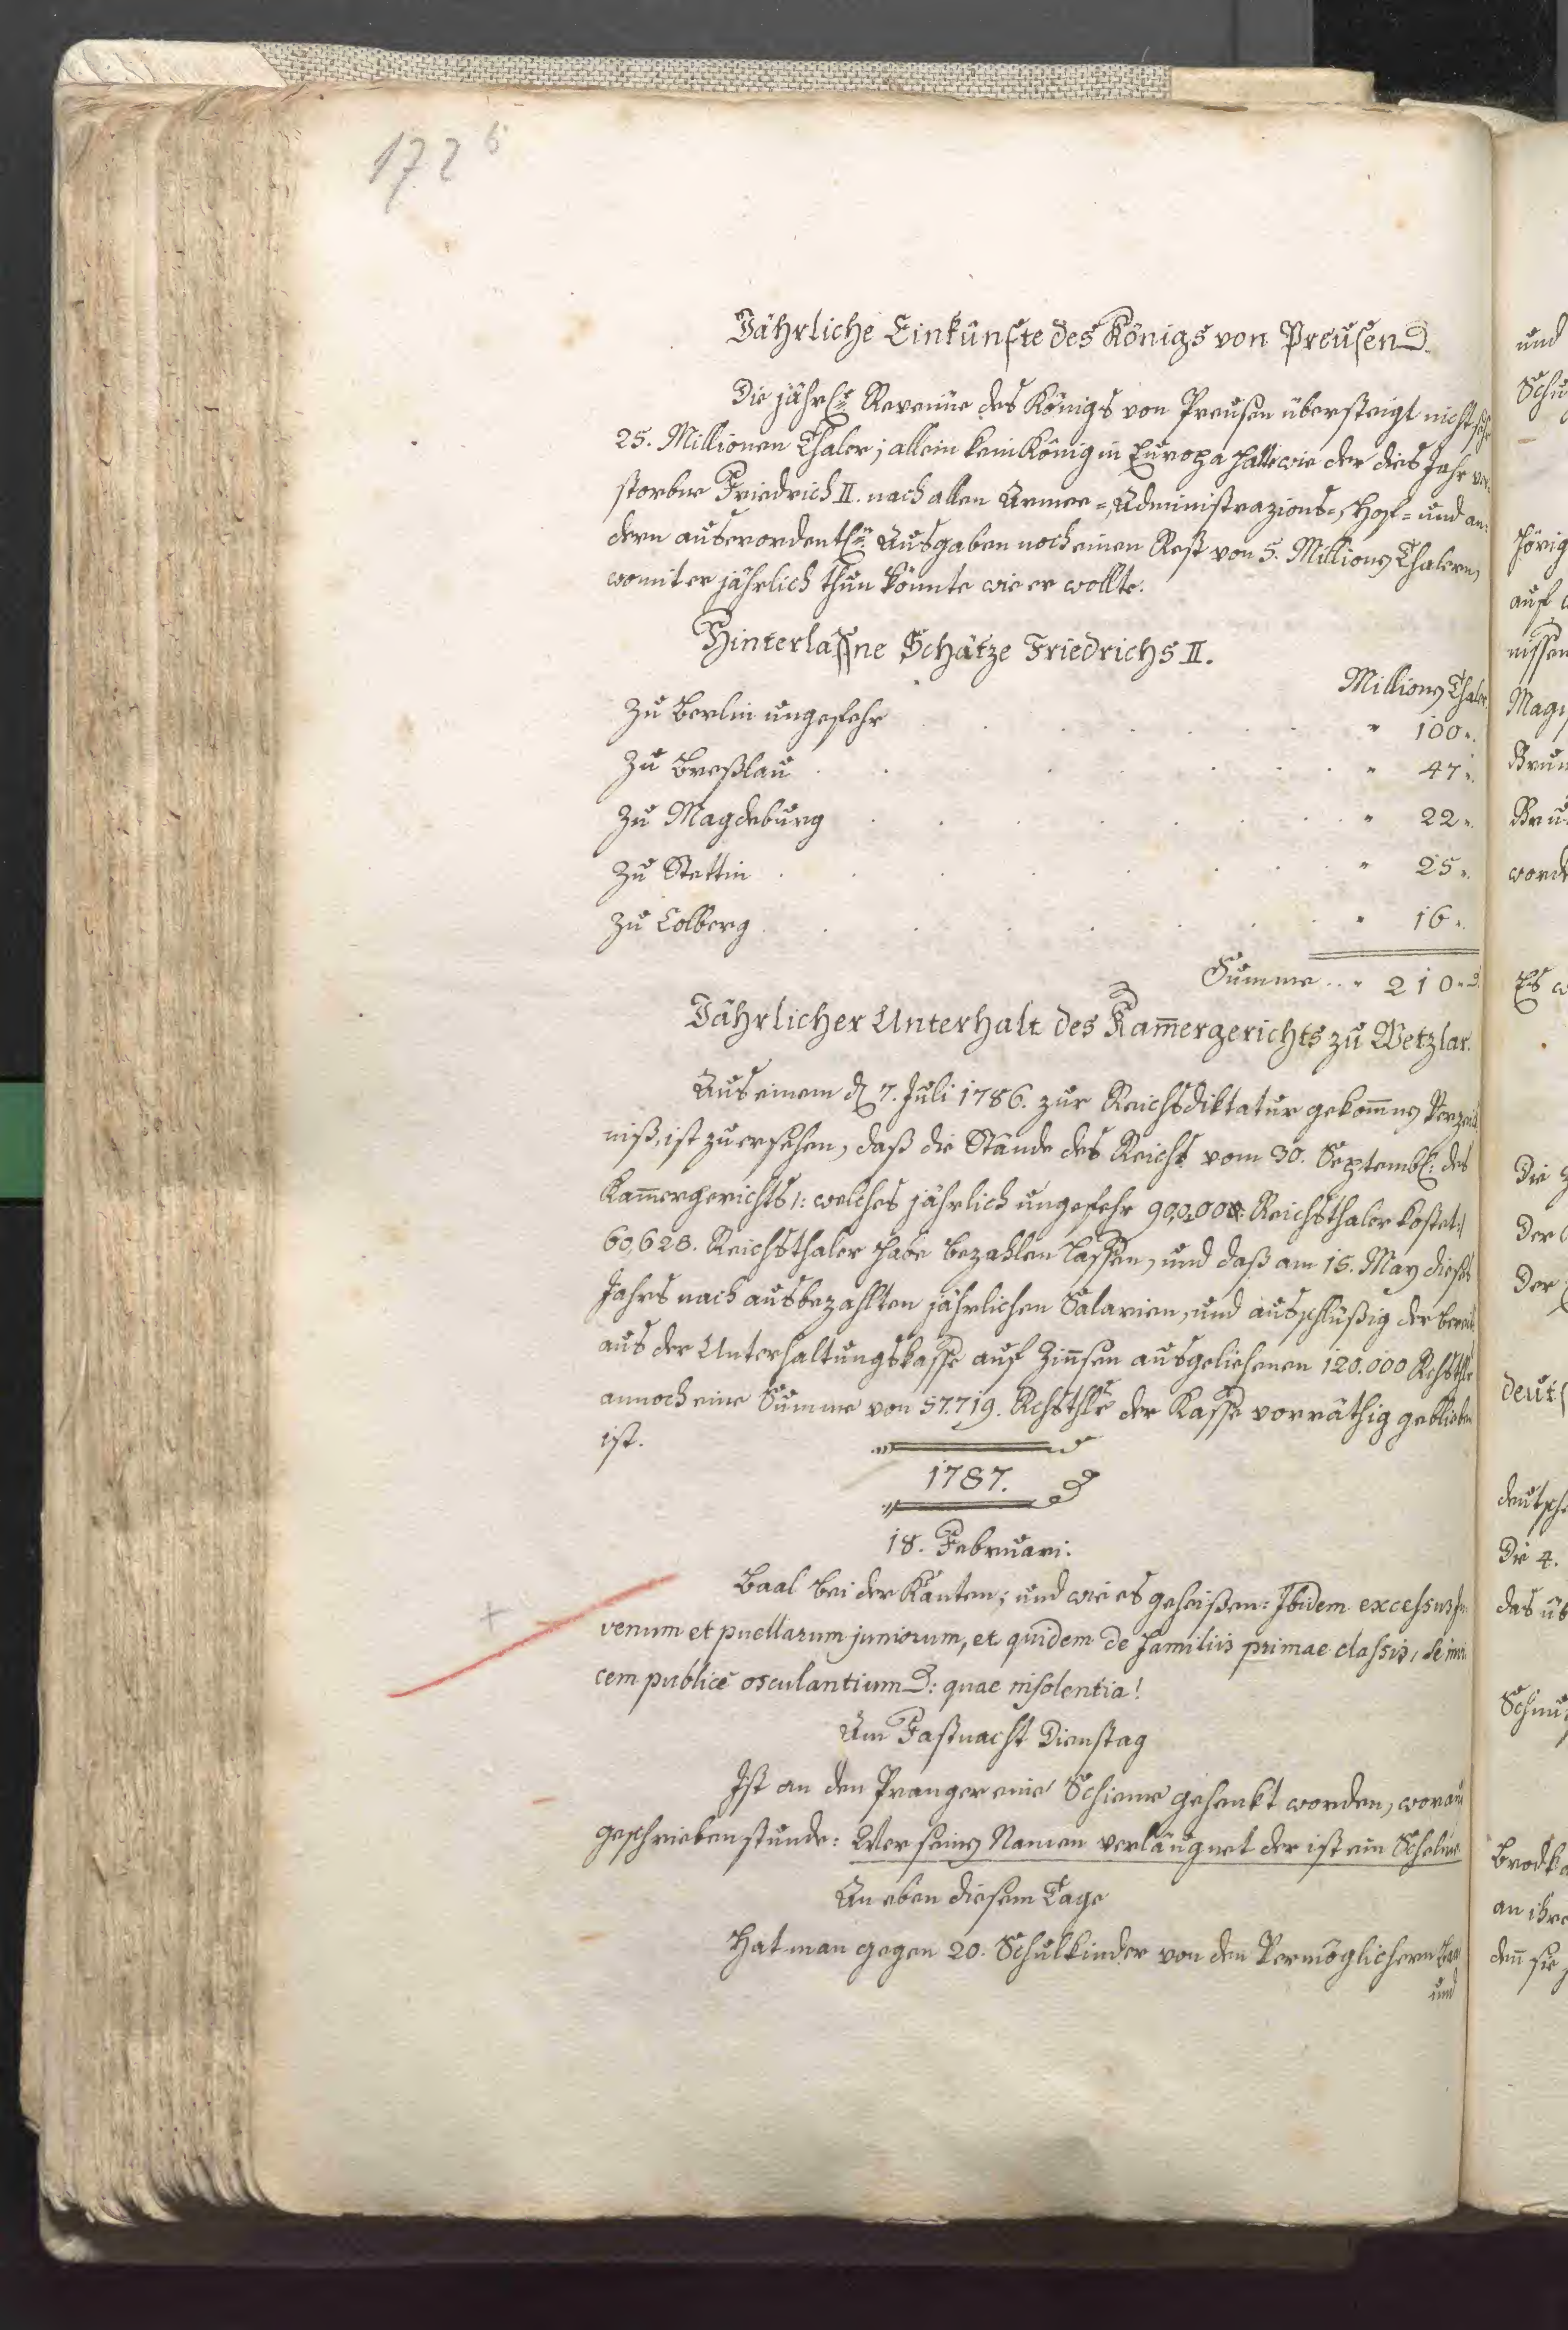 1726
Jährliche Einkünfte des Königs von Preusen
Die jährl. Revenüe des Königs von Preusen übersteigt nicht sehr
25. Millionen Thaler; allein kein König in Europa hatte wie der dies Jahr ver-
storbne Friedrich II. nach allen Armee-, Administrazions-, Hof- und an-
dern auserordentl. Ausgaben noch einen Rest von 5. Millionen Thalern,
womit er jährlich thun könnte wie er wollte.
Hinterlaßne Schätze Friedrichs II.
Millionen Thaler
Zu Berlin ungefehr 100.
Zu Breßlau 47.
Zu Magdeburg 22.
Zu Stettin 25.
Zu Colberg 16.
Summe 210.
Jährlicher Unterhalt des Kam̄ergerichts zu Wetzlar.
Aus einem den 7. Juli 1786. zur Reichsdiktatur gekom̄nen Verzeich-
niß, ist zu ersehen, daß die Stände des Reichs vom 30. Septemb. des
Kam̄ergerichts /: welches jährlich ungefehr 90,000. Reichsthaler kostet :/
60,628. Reichsthaler habe bezahlen lassen, und daß am 15. May dieses
Jahrs nach ausbezahlten jährlichen Salarien, und ausschlüßig der bereits
aus der Unterhaltungskasse auf Zin̄sen ausgeliehenen 120.000 Rchsthlr
annoch eine Summe von 57.719. Rchsthlr der Kasse vorräthig geblieben
ist.
1787.
18. Februari.
Baal bei der Kanten; und wie es geheißen: Ibidem excessus ju
venum et puellarum juniorum, et quidem de familiis primae classis, se invi
cem publicè osculantium: quae insolentia!
Am Faßnacht Dienstag
Ist an den Pranger eine Schieme gehenkt worden, worauf
geschrieben stunde: Wer seinen Namen verläugnet der ist ein Schelm
An eben diesem Tage
Hat man gegen 20. Schulkinder von den Vermöglichern
und
und
Schu
hörig
auf
nissen
Mag
Brun
Bru
word
Es
Die
Der
Der
deuts
deutsch
Die 4.
das üb
Schmu
Brodk
an ihre
den̄ sie